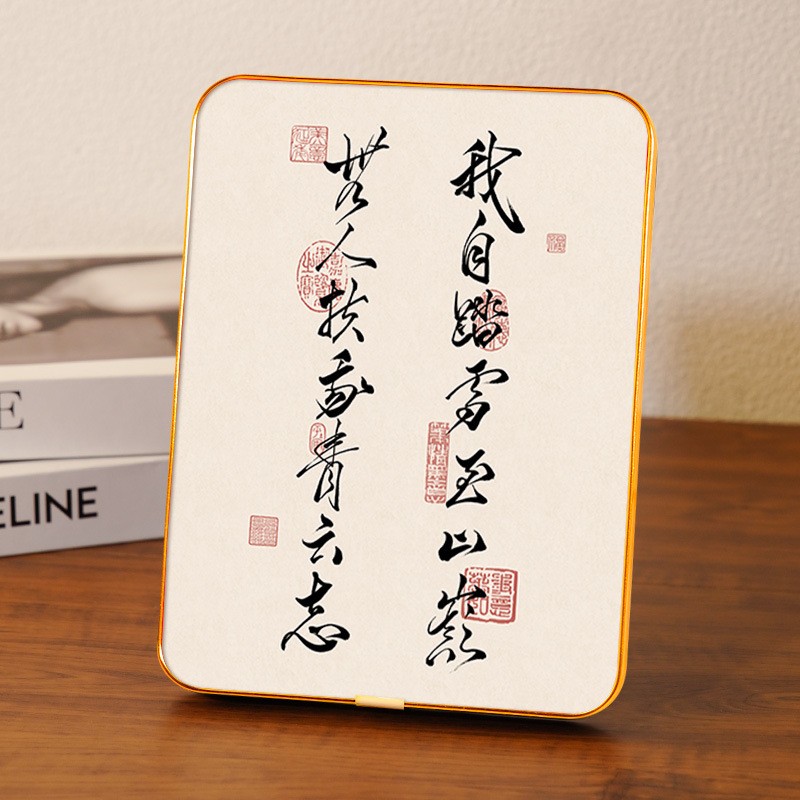 無人扶我青云志
我自踏雪至山巅
E
ELINE